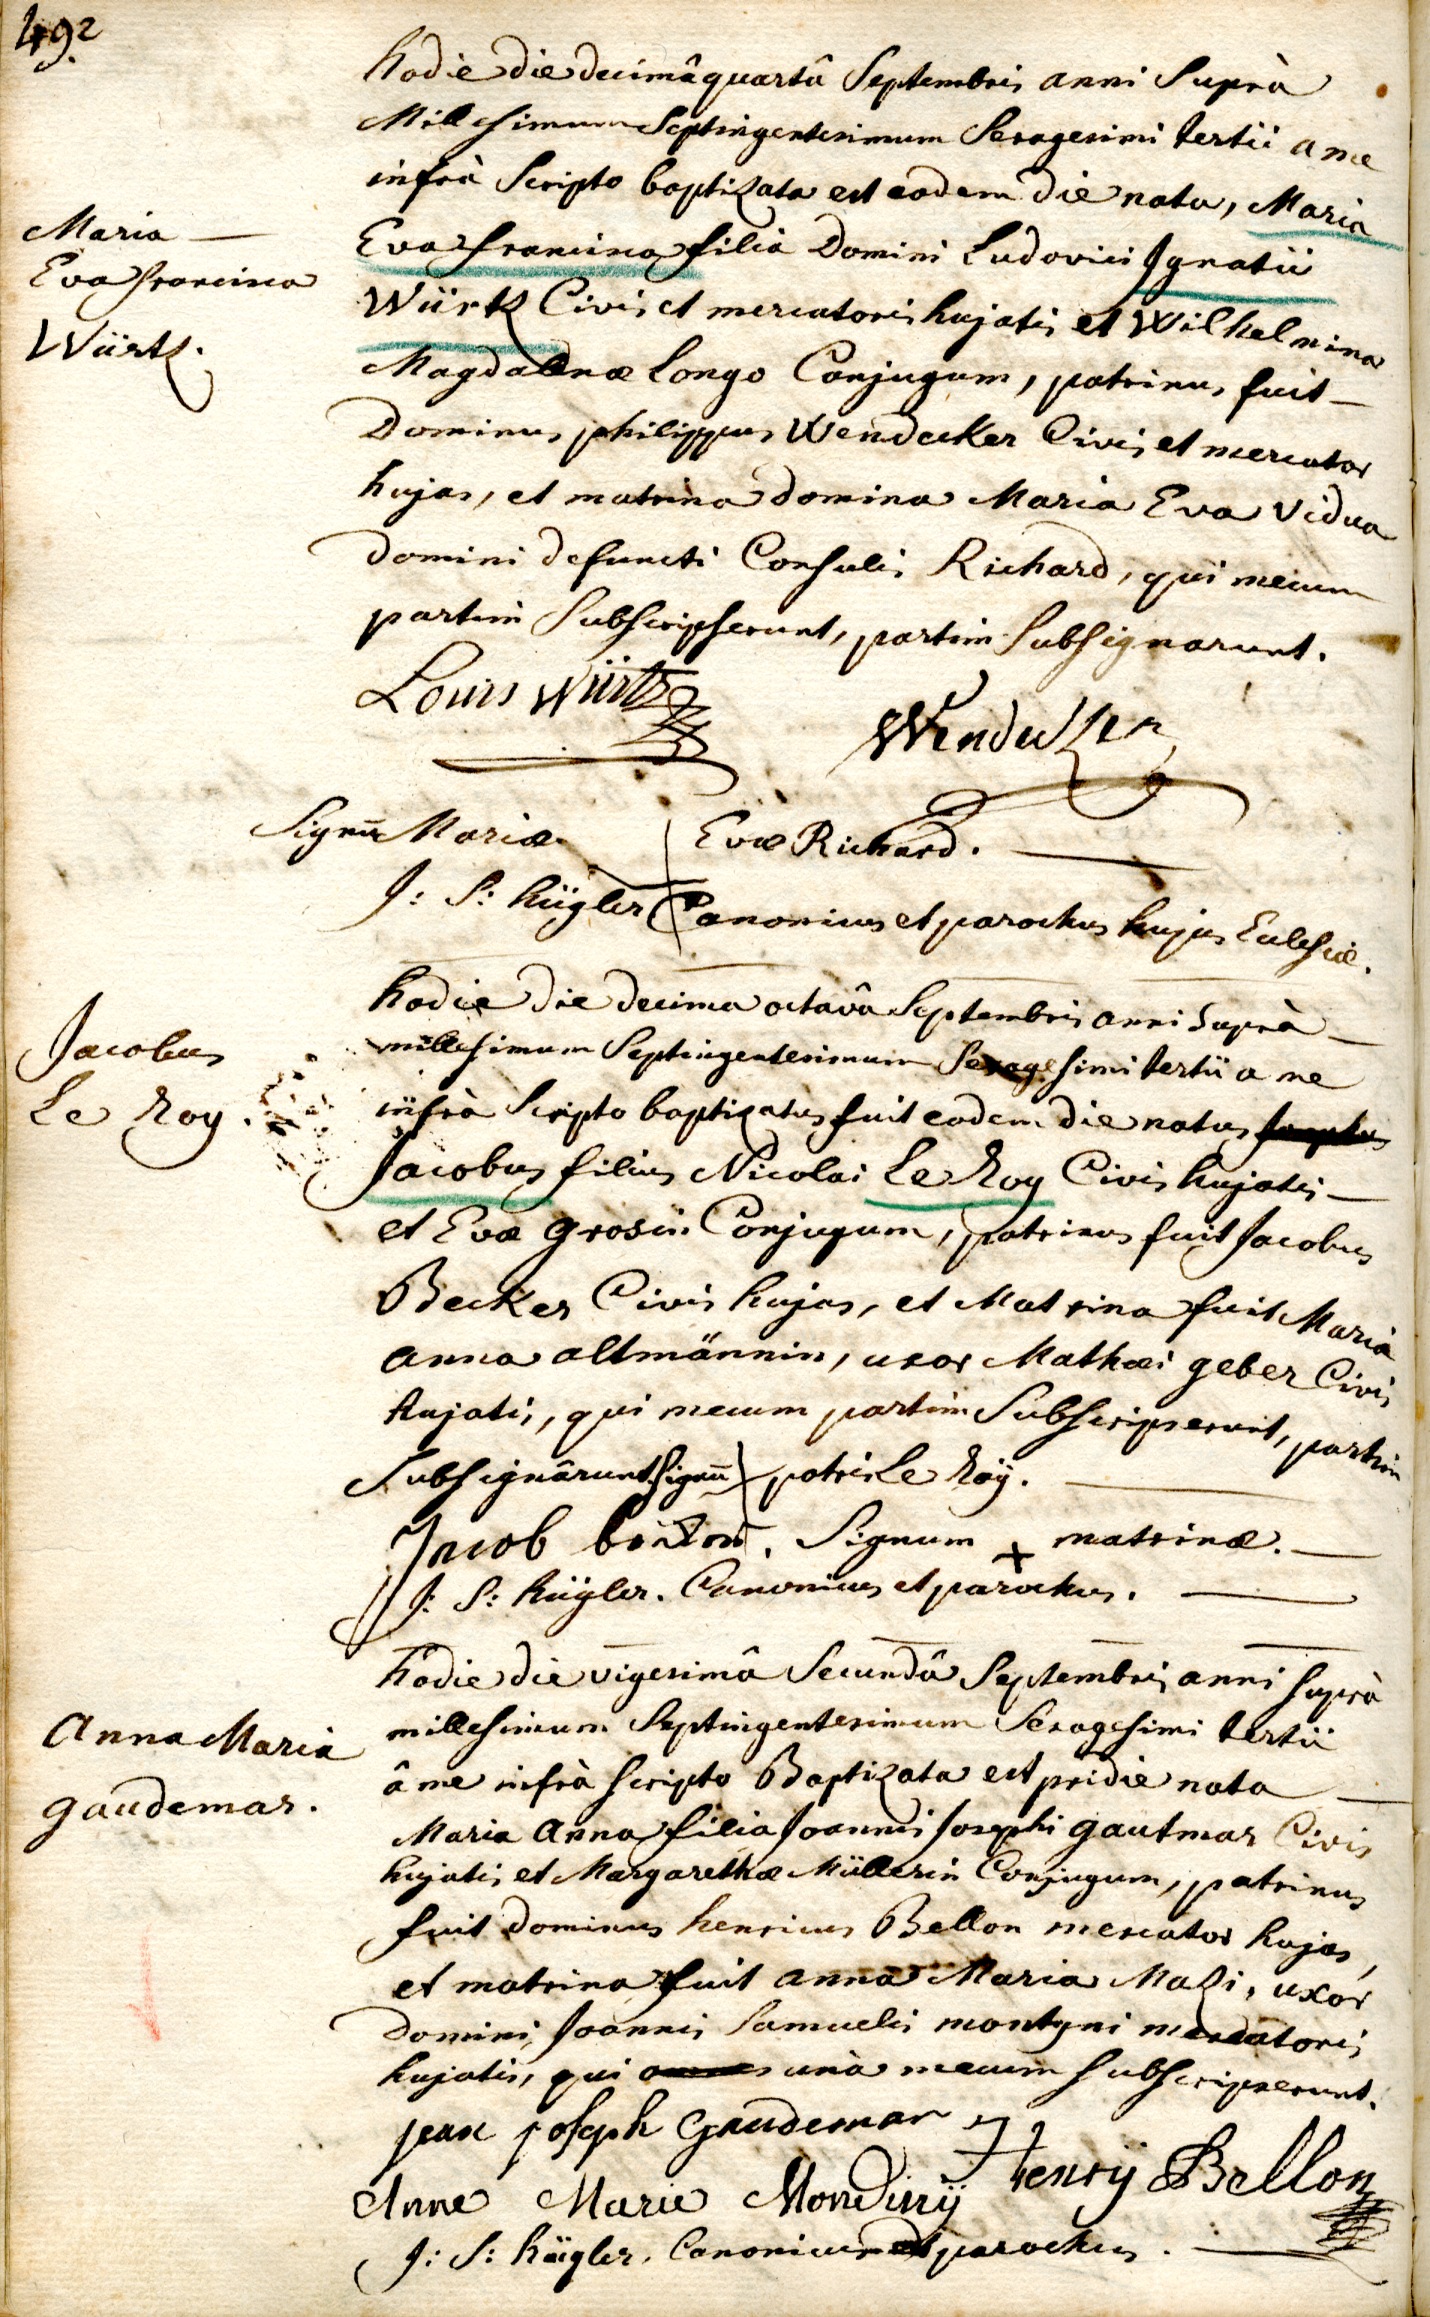 492.
hodie die decimâ quartâ Septembris anni Suprà
Millesimum Septingentesimum Sexagesimi tertii a me
infrà Scripto baptizata est eodem die nata, Maria
Maria —
Eva francisca
Würtz.
Eva francisca filia Domini Ludovici Ignatii
Würtz Civis et mercatoris hujatis et Wilhelmina
Magdalenæ Longo Conjugum, patrinus fuit —
Dominus philippus Wendecker Civis et mercator
hujas, et matrina domina Maria Eva Vidua
Domini defuncti Consulis Richard, qui mecum
partim Subscripserunt, partim Subsignarunt.
Louis Würtz
Wendecker
Signū Mariæ Evæ Richard. —
J: S: hügler Canonicus et parochus hujus Ecclesiæ.
Jacobus
Le Roy.
hodie die decima octavâ Septembris anni Suprà —
millesimum Septingentesimum Sexagesimi tertii a me
infrà Scripto baptizatus fuit eodem die natus Josephus
Jacobus filius Nicolai Le Roy Civis hujatis —
et Evæ grosin Conjugum, patrinus fuit Jacobus
Becker Civis hujas, et Matrina fuit Maria
anna altmännin, uxor Mathæi geber Civis
hujatis, qui mecum partim Subscripserunt, partim
Subsignârunt. Signū patris Le Roÿ. —
Jacob. Signum + matrinæ. —
J: S: hügler. Canonicus et parochus. —
Anna Maria
gaudemar.
hodie die vigesimâ Secundâ Septembris anni suprà
millesimum Septingentesimum Sexagesimi tertii
â me infrà scripto Baptizata est pridie nata —
Maria Anna filia Joannis Josephi gautmar Civis
hujatis et Margarethæ Müllerin Conjugum, patrinus
fuit dominus henricus Bellon mercator hujas,
et matrina fuit anna Maria Mazi, uxor
Domini Joannis Samuelis montgni mercatoris
hujatis, qui omnes unà mecum subscripserunt.
jean joseph Gaudemar
Henrÿ Bellon
Anne Marie Mondinÿ
J: S: hügler. Canonicus et parochus. —